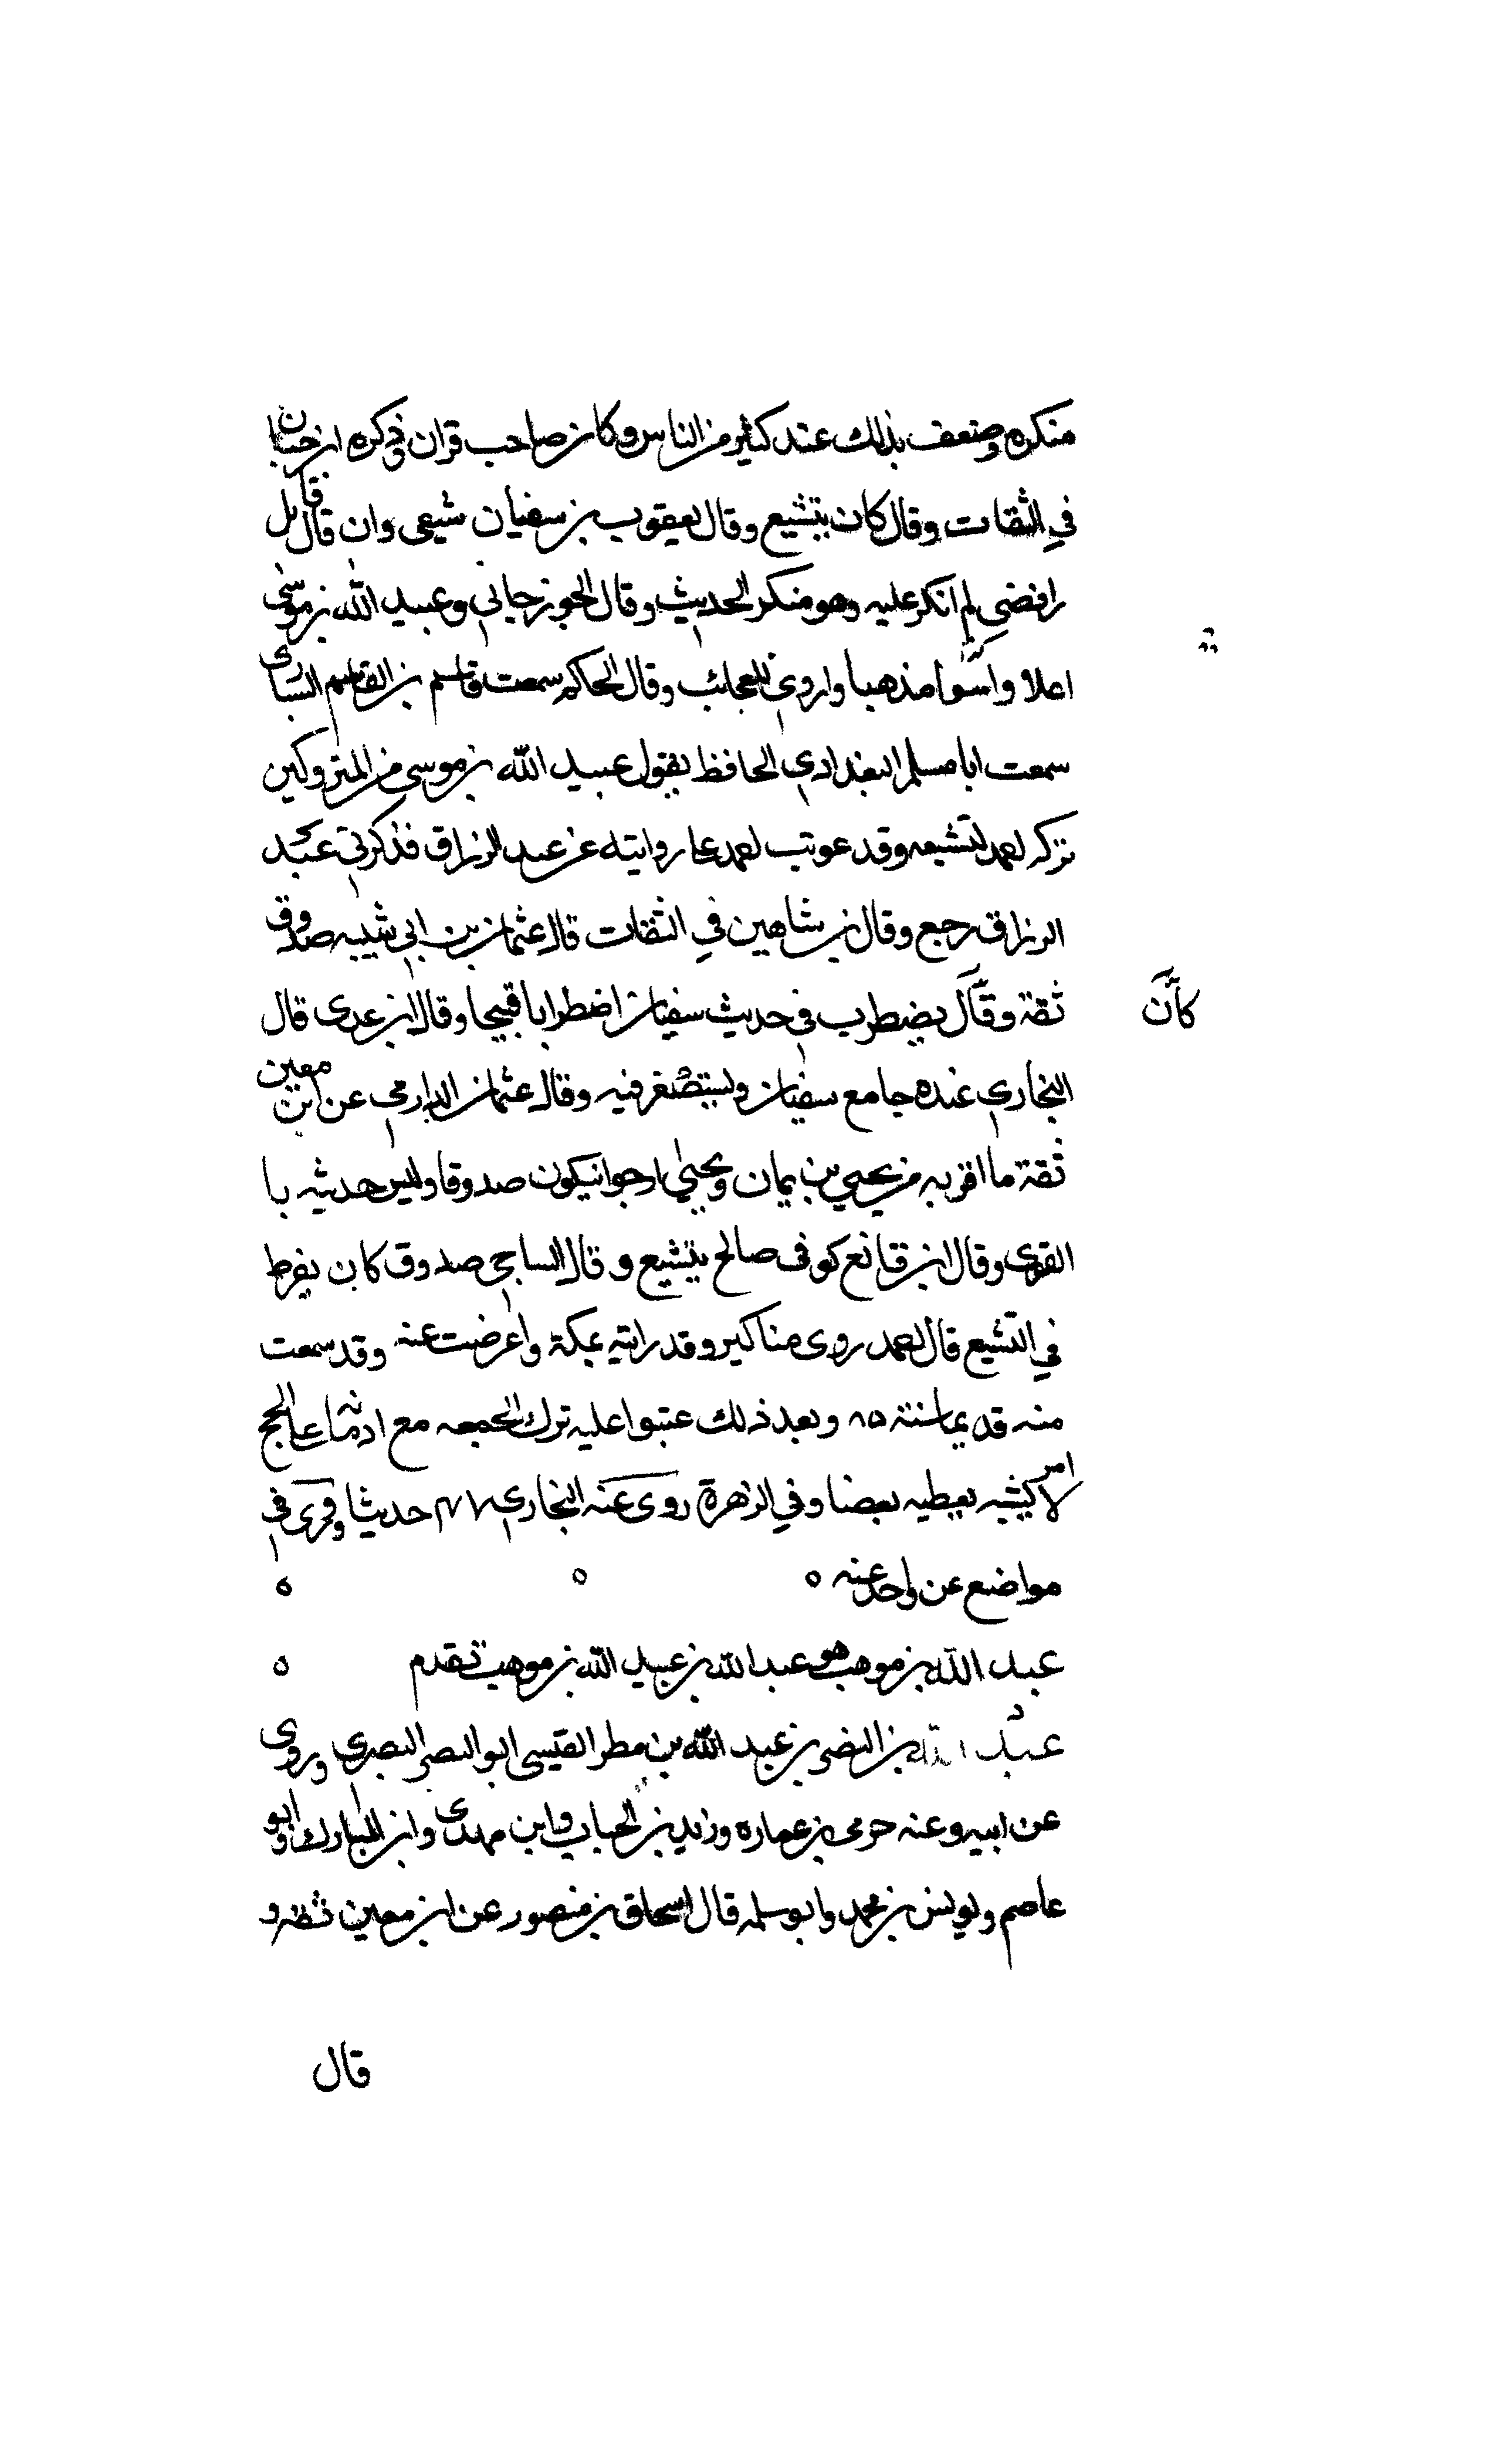 منكره وضعف بذلك عند كثير من الناس وكان صاحب قران وذكره ابن حبان
في الثقات وقال كان يتشيع وقال يعقوب بن سفيان شيعي وان قال قائل
رافضي لم انكر عليه وهو منكر الحديث وقال الجوزجاني وعبيد الله بن موسى
اعلا واسوا مذهبا واروى للعجائب وقال الحاكم سمعت قاسم بن القاسم السياري
سمعت ابا مسلم البغدادي الحافظ يقول عبيد الله بن موسى من المتروكين
تركه احمد لتشيعه وقد عوتب احمد على روايته عن عبد الرزاق فذكر ان عبد
الرزاق رجع وقال ابن شاهين في الثقات قال عثمان بن ابي شيبه صدوق
ثقة وقال يضطرب في حديث سفيان اضطرابا قبيحا وقال ابن عدى قال
كان
البخاري عنده جامع سفيان ويستصغر فيه وقال عثمان الدارمي عن ابن معين
ثقة ما اقربه من يحيي بن يمان ويحيى ارجوا انيكون صدوقا وليس حديثه با
القوى وقال ابن قانع كوفى صالح يتشيع وقال الساجي صدوق كان يفرط
في التشيع قال احمد روى مناكير وقد رايته بمكة واعرضت عنه وقد سمعت
منه قديما سنة ٨٥ وبعد ذلك عتبوا عليه ترك الجمعه مع ادمانه على الحج
امر لا يشبه بعضه بعضا وفي الزهرة روى عنه البخاري ٢٧ حديثا وروى في
مواضع عن واحد عنه ه ه ه
عبد الله بن موهب هو عبد الله بن عبيد الله بن موهب تقدم ه
عبد الله بن النضر بن عبد الله بن مطر القيسى ابو النضر البصري وروى
عن ابيه وعنه حرمى بن عماره وزيد بن الحباب وابن مهدى وابن المبارك وابو
عاصم ويونس بن محمد وابو سلمه قال اسحاق بن منصور عن ابن معين ثقه و
قال